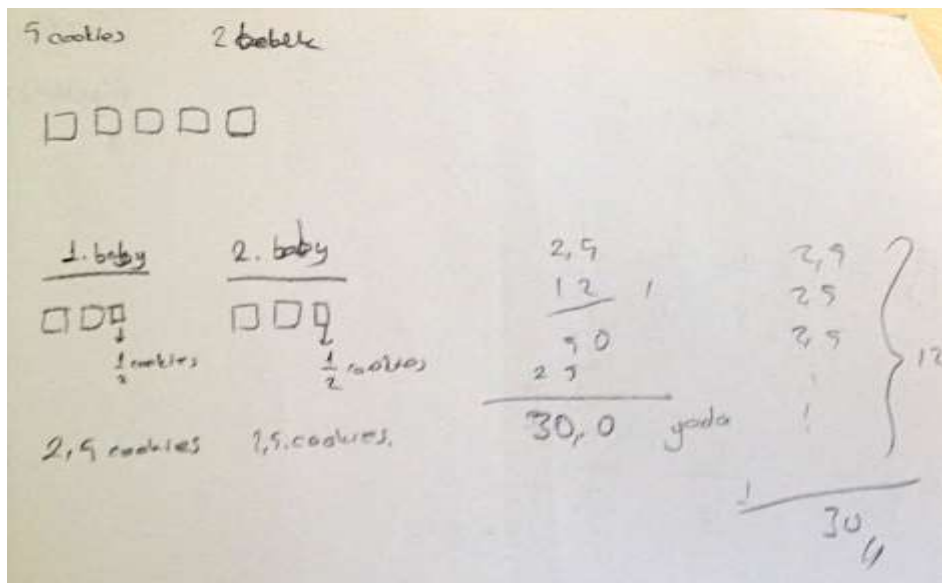 5 cookies 2 bebek
1. baby 2. baby
1/2 cookies 1/2 cookies
2,5 cookies 2,5 cookies.
2,5
12
50
25
30,0 yada
2,5
25
2,5
12
30